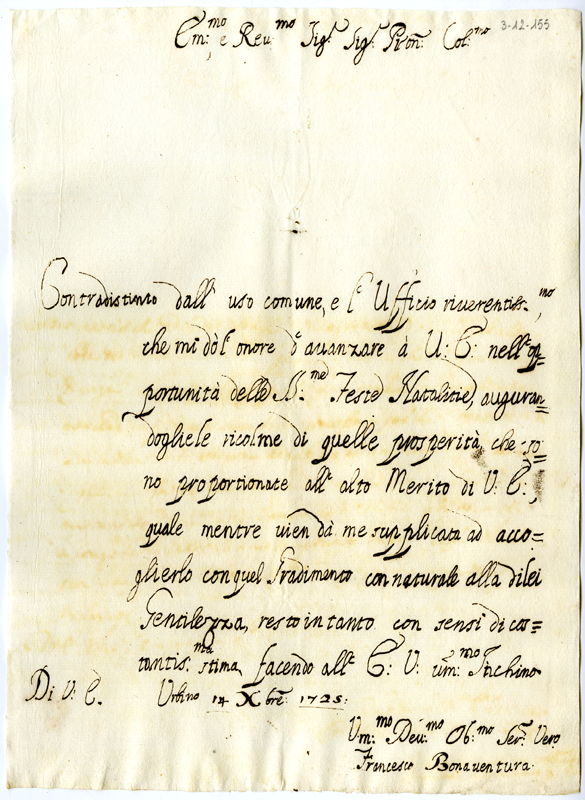 3-12-155
Em:mo e Reu:mo Sig.r Sig.r Pron: Col:mo
Contradistinto dall' uso comune, e l' Ufficio riverentiss:mo,
che mi dò l' onore d' auanzare à V: E: nell' op=
portunità delle S.me Feste Natalitie, auguran=
dogliele ricolme di quelle prosperità, che so=
no proportionate all' alto Merito di V: E:,
quale mentre uien dà me supplicata ad acco=
glierlo con quel Gradimento connaturale alla di lei
Gentilezza, resto intanto con sensi di cos=
tantis:ma stima facendo all' E: V: um:mo Inchino
Di V: E. Urbino 14 Xbre: 1725:
Um:mo Deu:mo Ob:mo Ser: Vero
Francesco Bonaventura